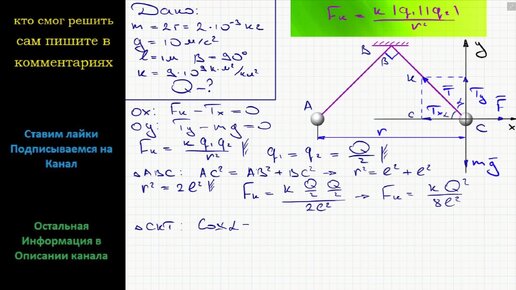 кто смог решить
сам пишите в
комментариях
Ставим лайки
Подписываемся на
Канал
Остальная
Информация в
Описании канала
Дано:
m = 2г = 2·10⁻³ кг
g = 10 м/с²
ℓ = 1м B = 90°
k = 9·10⁹ Н·м²/Кл²
Q – ?
Fк = k |q₁||q₂| / r²
ox: Fк – Tx = 0
oy: Ty – mg = 0
Fк = k q₁ q₂ / r² q₁ = q₂ = Q/2
△ABC: AC² = AB² + BC² → r² = ℓ² + ℓ²
r² = 2ℓ² Fк = k Q/2 Q/2 / 2ℓ² → Fк = kQ² / 8ℓ²
△СКТ: Cosα –
B
B
y
A
K
T
Ty
Tx
α
F
C
C
x
r
mg